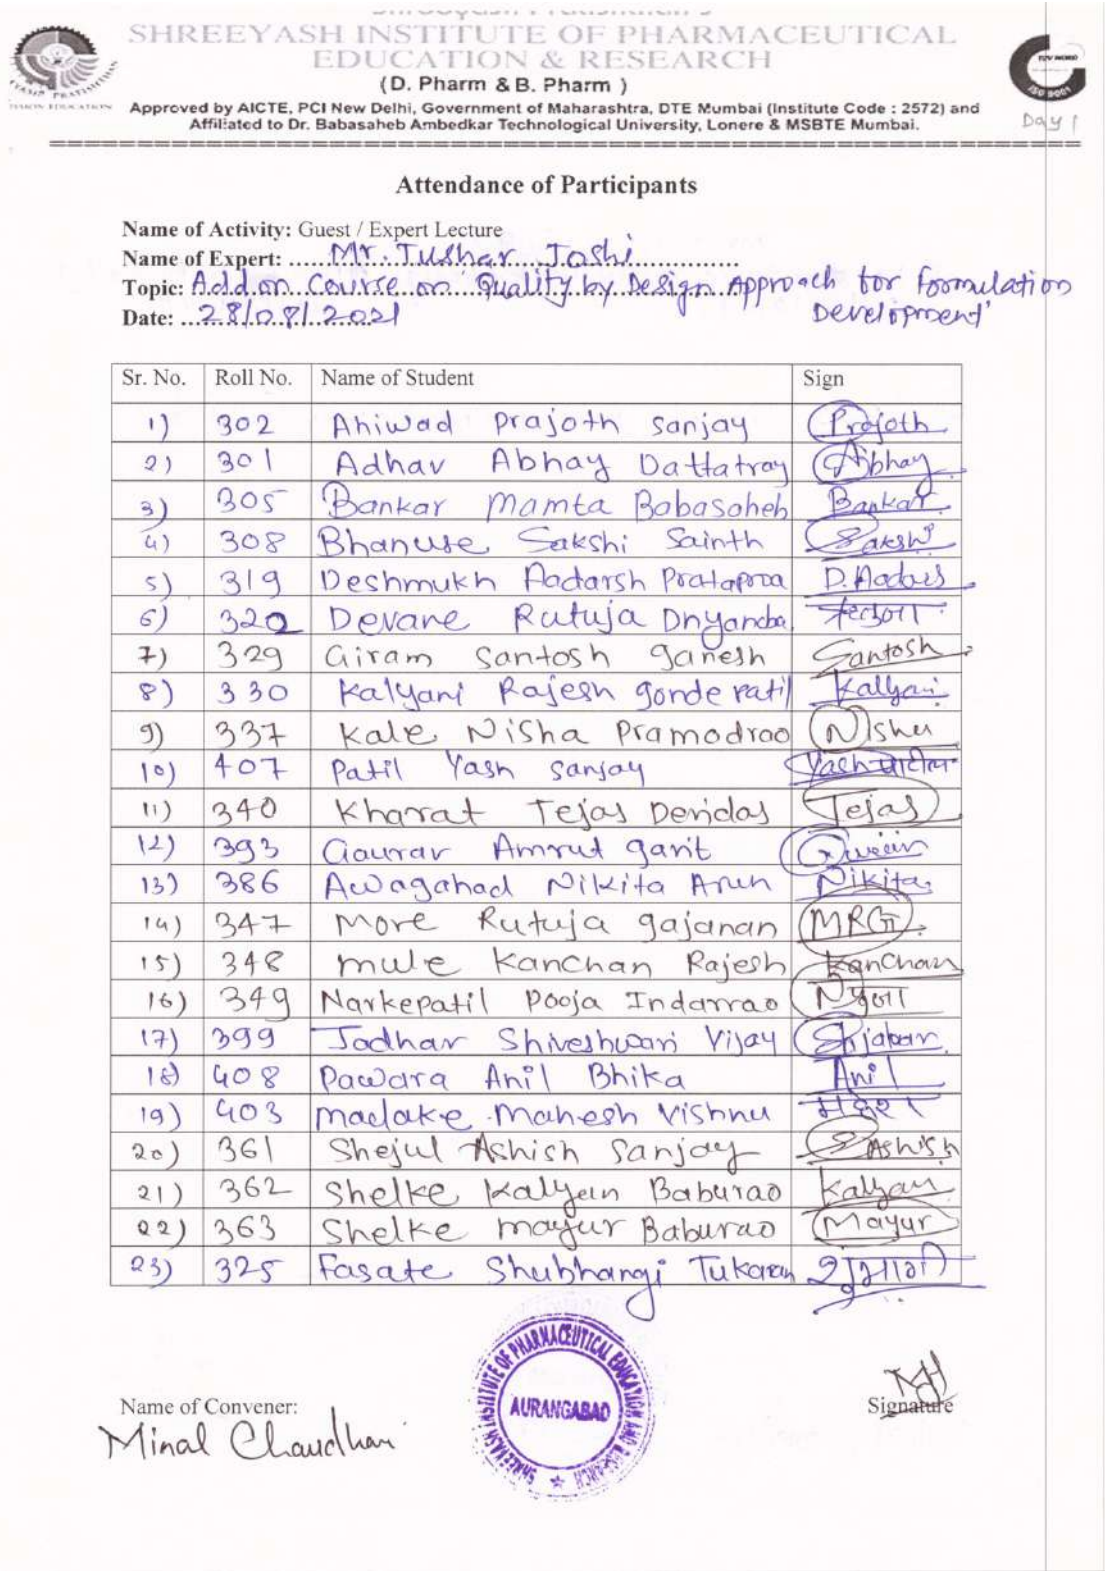 SHREEYASH INSTITUTE OF PHARMACEUTICAL
EDUCATION & RESEARCH
(D. Pharm & B. Pharm )
Approved by AICTE, PCI New Delhi, Government of Maharashtra, DTE Mumbai (Institute Code : 2572) and
Affiliated to Dr. Babasaheb Ambedkar Technological University, Lonere & MSBTE Mumbai.
TUV NORD
ISO 9001
Day 1
Attendance of Participants
Name of Activity: Guest / Expert Lecture
Name of Expert: Mr. Tushar Joshi
Topic: Add on Course on 'Quality by Design Approach for Formulation
Development'
Date: 28/08/2021
Sr. No. Roll No. Name of Student Sign
1) 302 Ahiwad Prajoth Sanjay Prajoth
2) 301 Adhav Abhay Dattatray Abhay
3) 305 Bankar Mamta Babasaheb Bankar
4) 308 Bhanuse Sakshi Sainth Sakshi
5) 319 Deshmukh Aadarsh
6) 320 Devane Rutuja
7) 329 Giram Santosh Ganesh Santosh
8) 330 Kalyani Rajesh gonde patil Kalyani
9) 337 Kale Nisha Pramodrao Nisha
10) 407 Patil Yash Sanjay Yash पाटील
11) 340 Kharat Tejas Devidas Tejas
12) 393 Gaurav Amrut garit
13) 386 Awagahad Nikita Arun Nikita
14) 347 More Rutuja gajanan MRG
15) 348 Mule Kanchan Rajesh Kanchan
16) 349 Narkepatil Pooja Indarrao
17) 399 Jadhar Shiveshwari Vijay
18) 408 Pawara Anil Bhika Anil
19) 403 Madake Mahesh Vishnu महेश
20) 361 Shejul Ashish Sanjay Ashish
21) 362 Shelke Kalyan Baburao Kalyan
22) 363 Shelke Mayur Baburao Mayur
23) 325 Fasate Shubhangi Tukaram शुभांगी
SHREEYASH INSTITUTE OF PHARMACEUTICAL EDUCATION AND RESEARCH
AURANGABAD
Name of Convener:
Minal Chaudhari
Signature